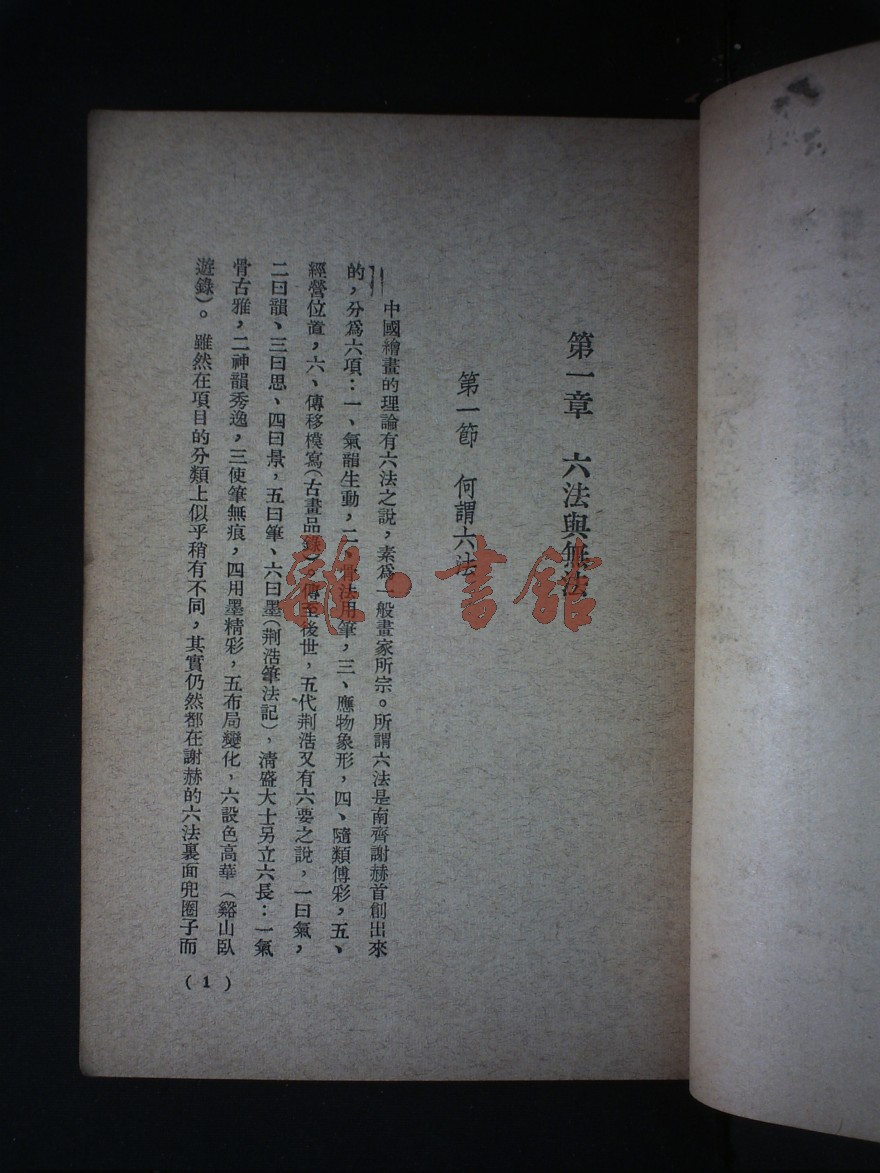 第一章　六法與無法
第一節　何謂六法
中國繪畫的理論有六法之說，素爲一般畫家所宗。所謂六法是南齊謝赫首創出來
的，分爲六項：一、氣韻生動，二、骨法用筆，三、應物象形，四、隨類傅彩，五、
經營位置，六、傳移模寫(古畫品錄)。傳至後世，五代荆浩又有六要之說，一曰氣，
二曰韻、三曰思、四曰景，五曰筆、六曰墨(荆浩筆法記)，清盛大士另立六長：一氣
骨古雅，二神韻秀逸，三使筆無痕，四用墨精彩，五布局變化，六設色高華（谿山臥
遊錄）。雖然在項目的分類上似乎稍有不同，其實仍然都在謝赫的六法裏面兜圈子而
(1)
雜·書館